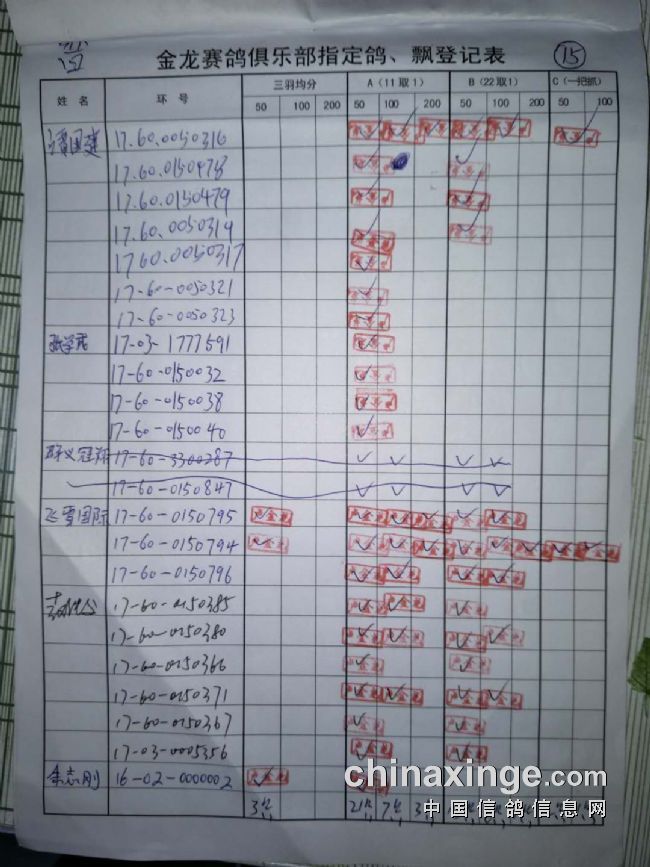 金龙赛鸽俱乐部指定鸽、飘登记表 15
姓 名 环 号 三羽均分 A(11取1) B(22取1) C(一把抓)
50 100 200 50 100 200 50 100 200 50 100
17.60.0050316
17.60.0150478
17.60.0150479
17.60.0050319
17.60.0050317
17-60-0050321
17-60-0050323
17-03-1777591
17-60-0150032
17-60-0150038
17-60-0150040
17-60-3300287
17-60-0150847
飞雪国际 17-60-0150795
17-60-0150794
17-60-0150796
17-60-0150385
17-60-0150380
17-60-0150366
17-60-0150371
17-60-0150367
17-03-0005356
余志刚 16-02-0000002
3 21 7 3
chinaxinge.com
中国信鸽信息网